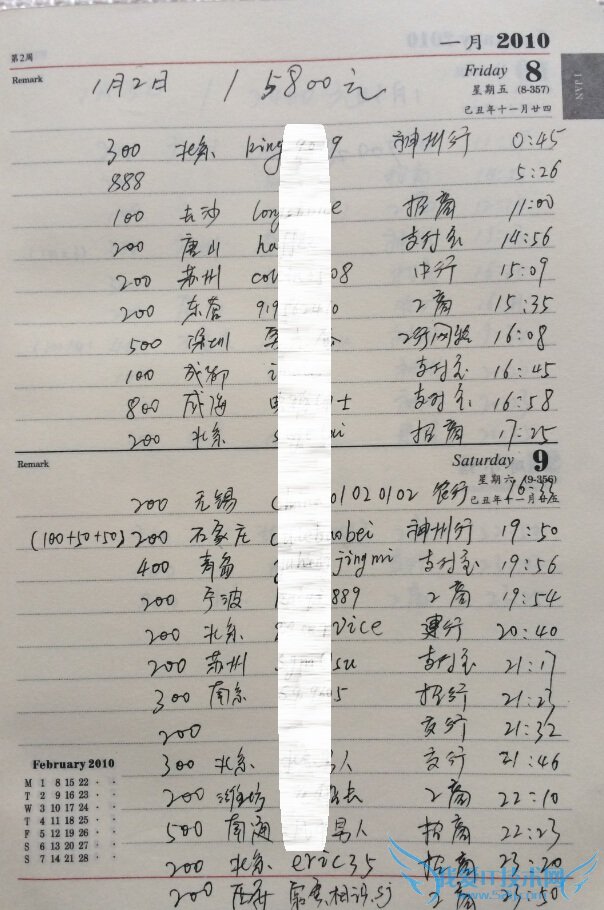 第2周
一月 2010
Remark
1月2日 15800元
Friday 8
星期五 (8-357)
己丑年十一月廿四
1 JAN
300 北京 king 9 神州行 0:45
888 5:26
100 长沙 long 招商 11:00
200 唐山 ha 支付宝 14:56
200 苏州 co 08 中行 15:09
200 东营 919 0 工商 15:35
500 深圳 工行网银 16:08
100 成都 支付宝 16:45
800 威海 士 支付宝 16:58
200 北京 i 招商 17:25
Remark
Saturday 9
星期六 (9-356)
己丑年十一月廿五
200 无锡 01020102 农行
(100+50+50) 200 石家庄 bei 神州行 19:50
400 青岛 jingmi 支付宝 19:56
200 宁波 889 工商 19:54
200 北京 vice 建行 20:40
200 苏州 su 支付宝 21:17
300 南京 5 招行 21:23
200 交行 21:32
300 北京 人 交行 21:46
200 潍坊 工商 22:10
500 南通 男人 招商 22:23
200 北京 eric35 招商 23:20
200
February 2010
M 1 8 15 22 · ·
T 2 9 16 23 · ·
W 3 10 17 24 · ·
T 4 11 18 25 · ·
F 5 12 19 26 · ·
S 6 13 20 27 · ·
S 7 14 21 28 · ·